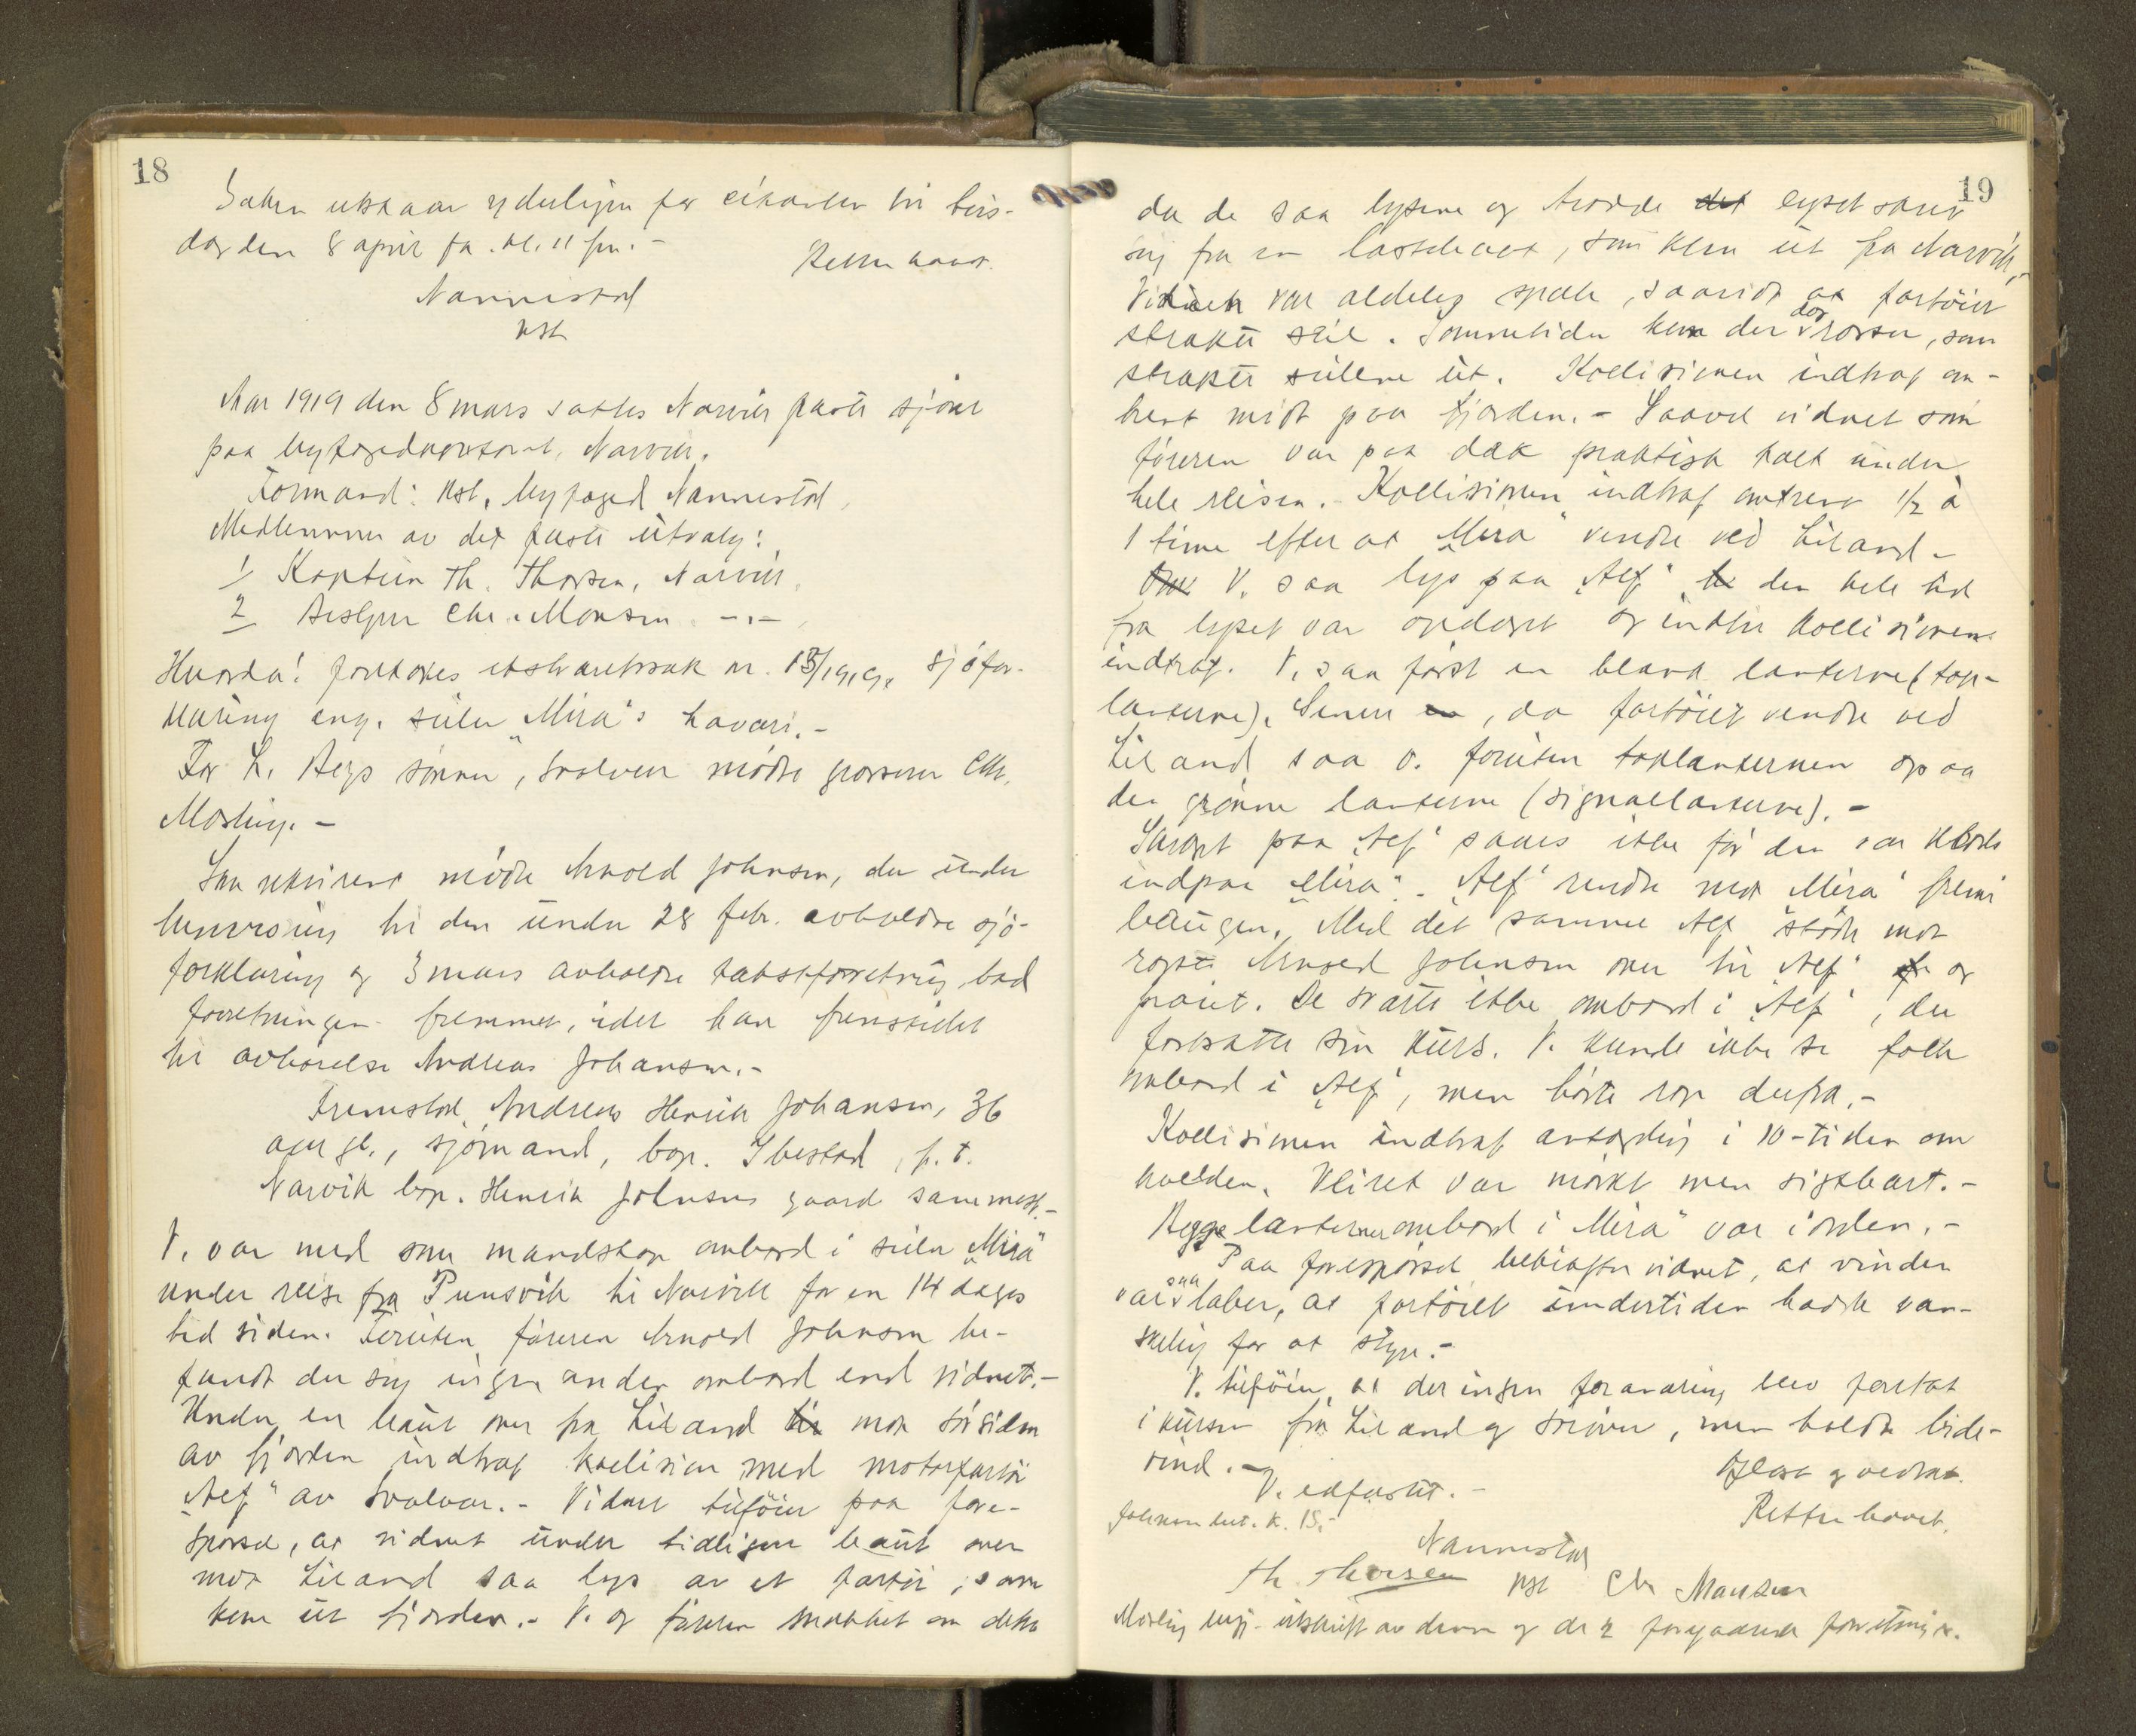 18
Saken utstaar yderligere for eikanten til tirs-
dag den 8 april fm. kl. 11 fm. -
Retten hævet.
Nannestad
kst
Aar 1919 den 8 mars sattes Narvik faste sjøret
paa byfogedkontoret, Narvik.
Formand: kst. byfoged Nannestad,
Medlemmer av det faste utvalg:
1/ Kaptein Th. Thorsen, Narvik.
2 Chr. Monsen -.-
Hvorda! foretokes ekstraretssak nr. 13/1919, sjøfor-
klaring ang. skr. „Mira"s havari. -
For L. Bergs sønner, Svolvær mødte grosserer Chr.
Mosling. -
Som rekvirent mødte Arnold Johnsen, der under
henvisning til den under 28 febr. avholdte sjø-
forklaring og 3 mars avholdte takstforretning bad
forretningen fremmet, idet han fremstillet
til avhørelse Andreas Johansen. -
Fremstod Andreas Henrik Johansen, 36
aar gl., sjømand, bop. Ibestad, p.t.
Narvik bop. Henrik Johnsens gaard sammest. -
V. var med som mandskap ombord i „Mira"
under reise fra Punsvik til Narvik for en 14 dages
tid siden. Foruten føreren Arnold Johnsen be-
fandt der sig ingen anden ombord end vidnet. -
Under en baut over fra Liland til mot sørsiden
av fjorden indtraf kollision med motorfartøi
„Alf" av Svolvær. - Vidnet tilføier paa fore-
spørsel, at vidnet under tidligere baut over
mot Liland saa lys av et fartøi, som
kom ut fjorden. - V. og føreren snakket om dette
19
da de saa lysene og trodde det lyset
sig fra en lastebaat, som kom ut fra Narvik. -
Vinden var aldeles spak, saavidt at fartøiet
strakte seil. Sommetider kom der dog rosser, som
strakte seilene ut. Kollisionen indtraf om-
trent midt paa fjorden. - Saavel vidnet som
føreren var paa dæk praktisk talt under
hele reisen. - Kollisionen indtraf omtrent 1/2 à
1 time efter at „Mira" vendte ved Liland -
V. saa lys paa „Alf" den hele tid
fra lyset var opdaget og indtil kollisionen
indtraf. V. saa først en blank lanterne (top-
lanterne). Senere, da fartøiet vendte ved
Liland saa v. foruten toplanternen ogsaa
den grønne lanterne (signallanterne). -
Skroget paa „Alf" saaes ikke før den var kloss
indpaa „Mira". - „Alf" rendte mot „Mira" frem i
baugen. Med det samme „Alf" støtte mot
ropte Arnold Johnsen over til „Alf" og
praiet. De svarte ikke ombord i „Alf", der
fortsatte sin kurs. V. kunde ikke se folk
ombord i „Alf", men hørte rop derfra. -
Kollisionen indtraf antagelig i 10-tiden om
kvelden. Veiret var mørkt men sigtbart. -
Begge lanterner ombord i „Mira" var i orden. -
Paa forespørsel bekræfter vidnet, at vinden
var saa laber, at fartøiet undertiden hadde van-
skelig for at styre. -
V. tilføier, at der ingen forandring blev foretat
i kursen fra Liland og men holdt bide-
vind. -
Oplæst og vedtat.
V. edfæstet. -
Johnsen bet. K. 15,-
Retten hævet.
Nannestad
Th. Thorsen kst Chr Monsen
Mosling beg. utskrift av denne og de 2 foregaaende forretninger.